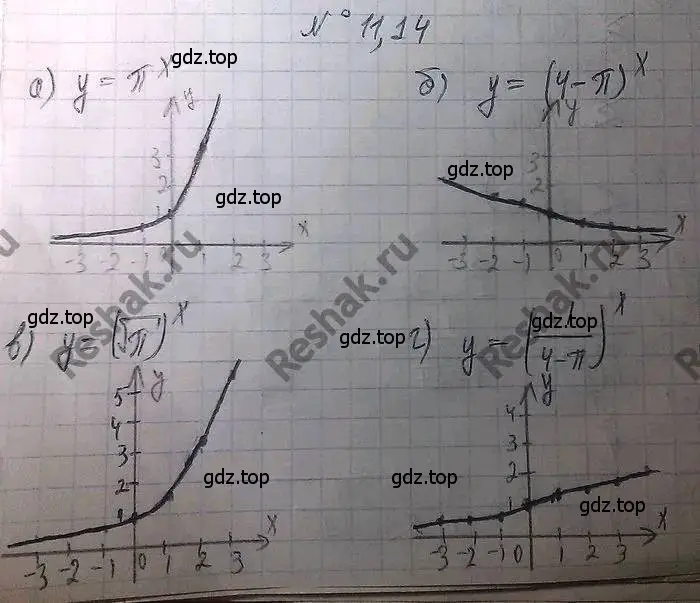 № 11,14
gdz.top
а) y = π^x
б) y = (4-π)^x
y
3
2
1
-3 -2 -1 0 1 2 3
x
gdz.top
y
3
2
1
-3 -2 -1 0 1 2 3
x
gdz.top
Reshak.ru
Reshak.ru
gdz.top
в) y = (√π)^x
gdz.top
г) y = (1/(4-π))^x
gdz.top
y
5
4
3
2
1
-3 -2 -1 0 1 2 3
x
gdz.top
y
4
3
2
1
-3 -2 -1 0 1 2 3
x
gdz.top
gdz.top